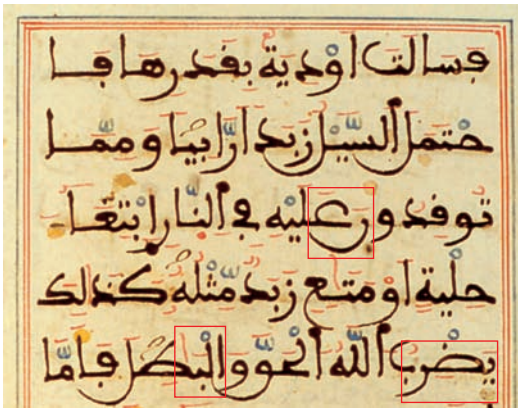 فسالت اودية بقدرها فا
حتمل السيل زبدا رابيا ومما
توقدون عليه في النار ابتغا
حلية او متع زبد مثله كذلك
يضرب الله الحق والبطل فاما